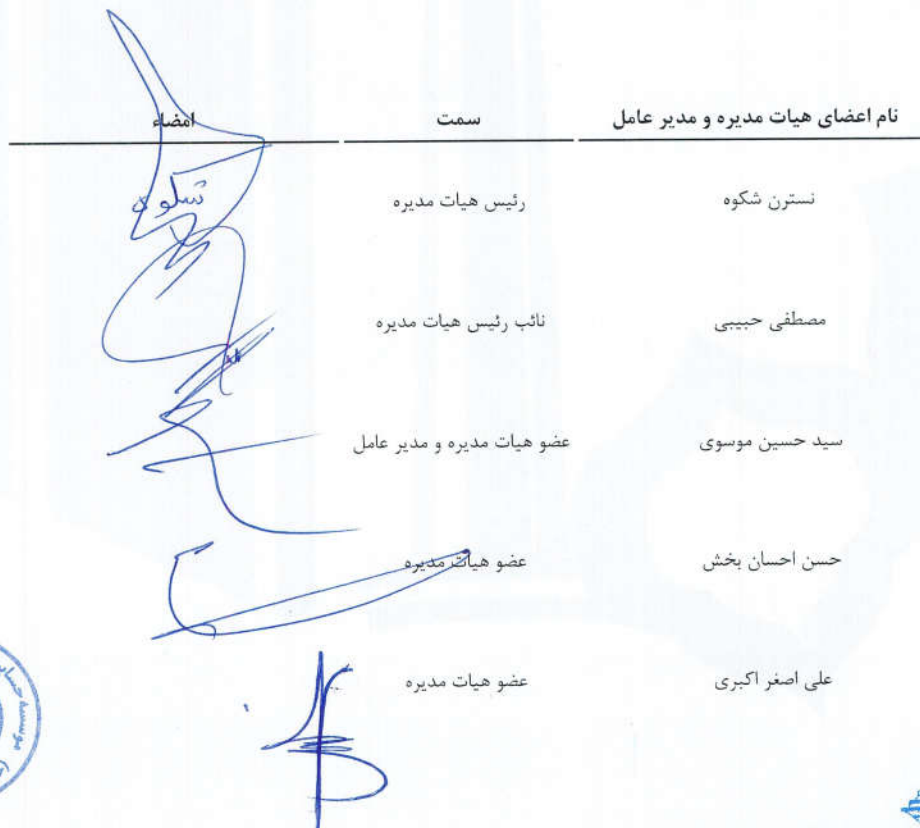 نام اعضای هیات مدیره و مدیر عامل سمت امضاء
نسترن شکوه رئیس هیات مدیره
مصطفی حبیبی نائب رئیس هیات مدیره
سید حسین موسوی عضو هیات مدیره و مدیر عامل
حسن احسان بخش عضو هیات مدیره
علی اصغر اکبری عضو هیات مدیره
موسسه